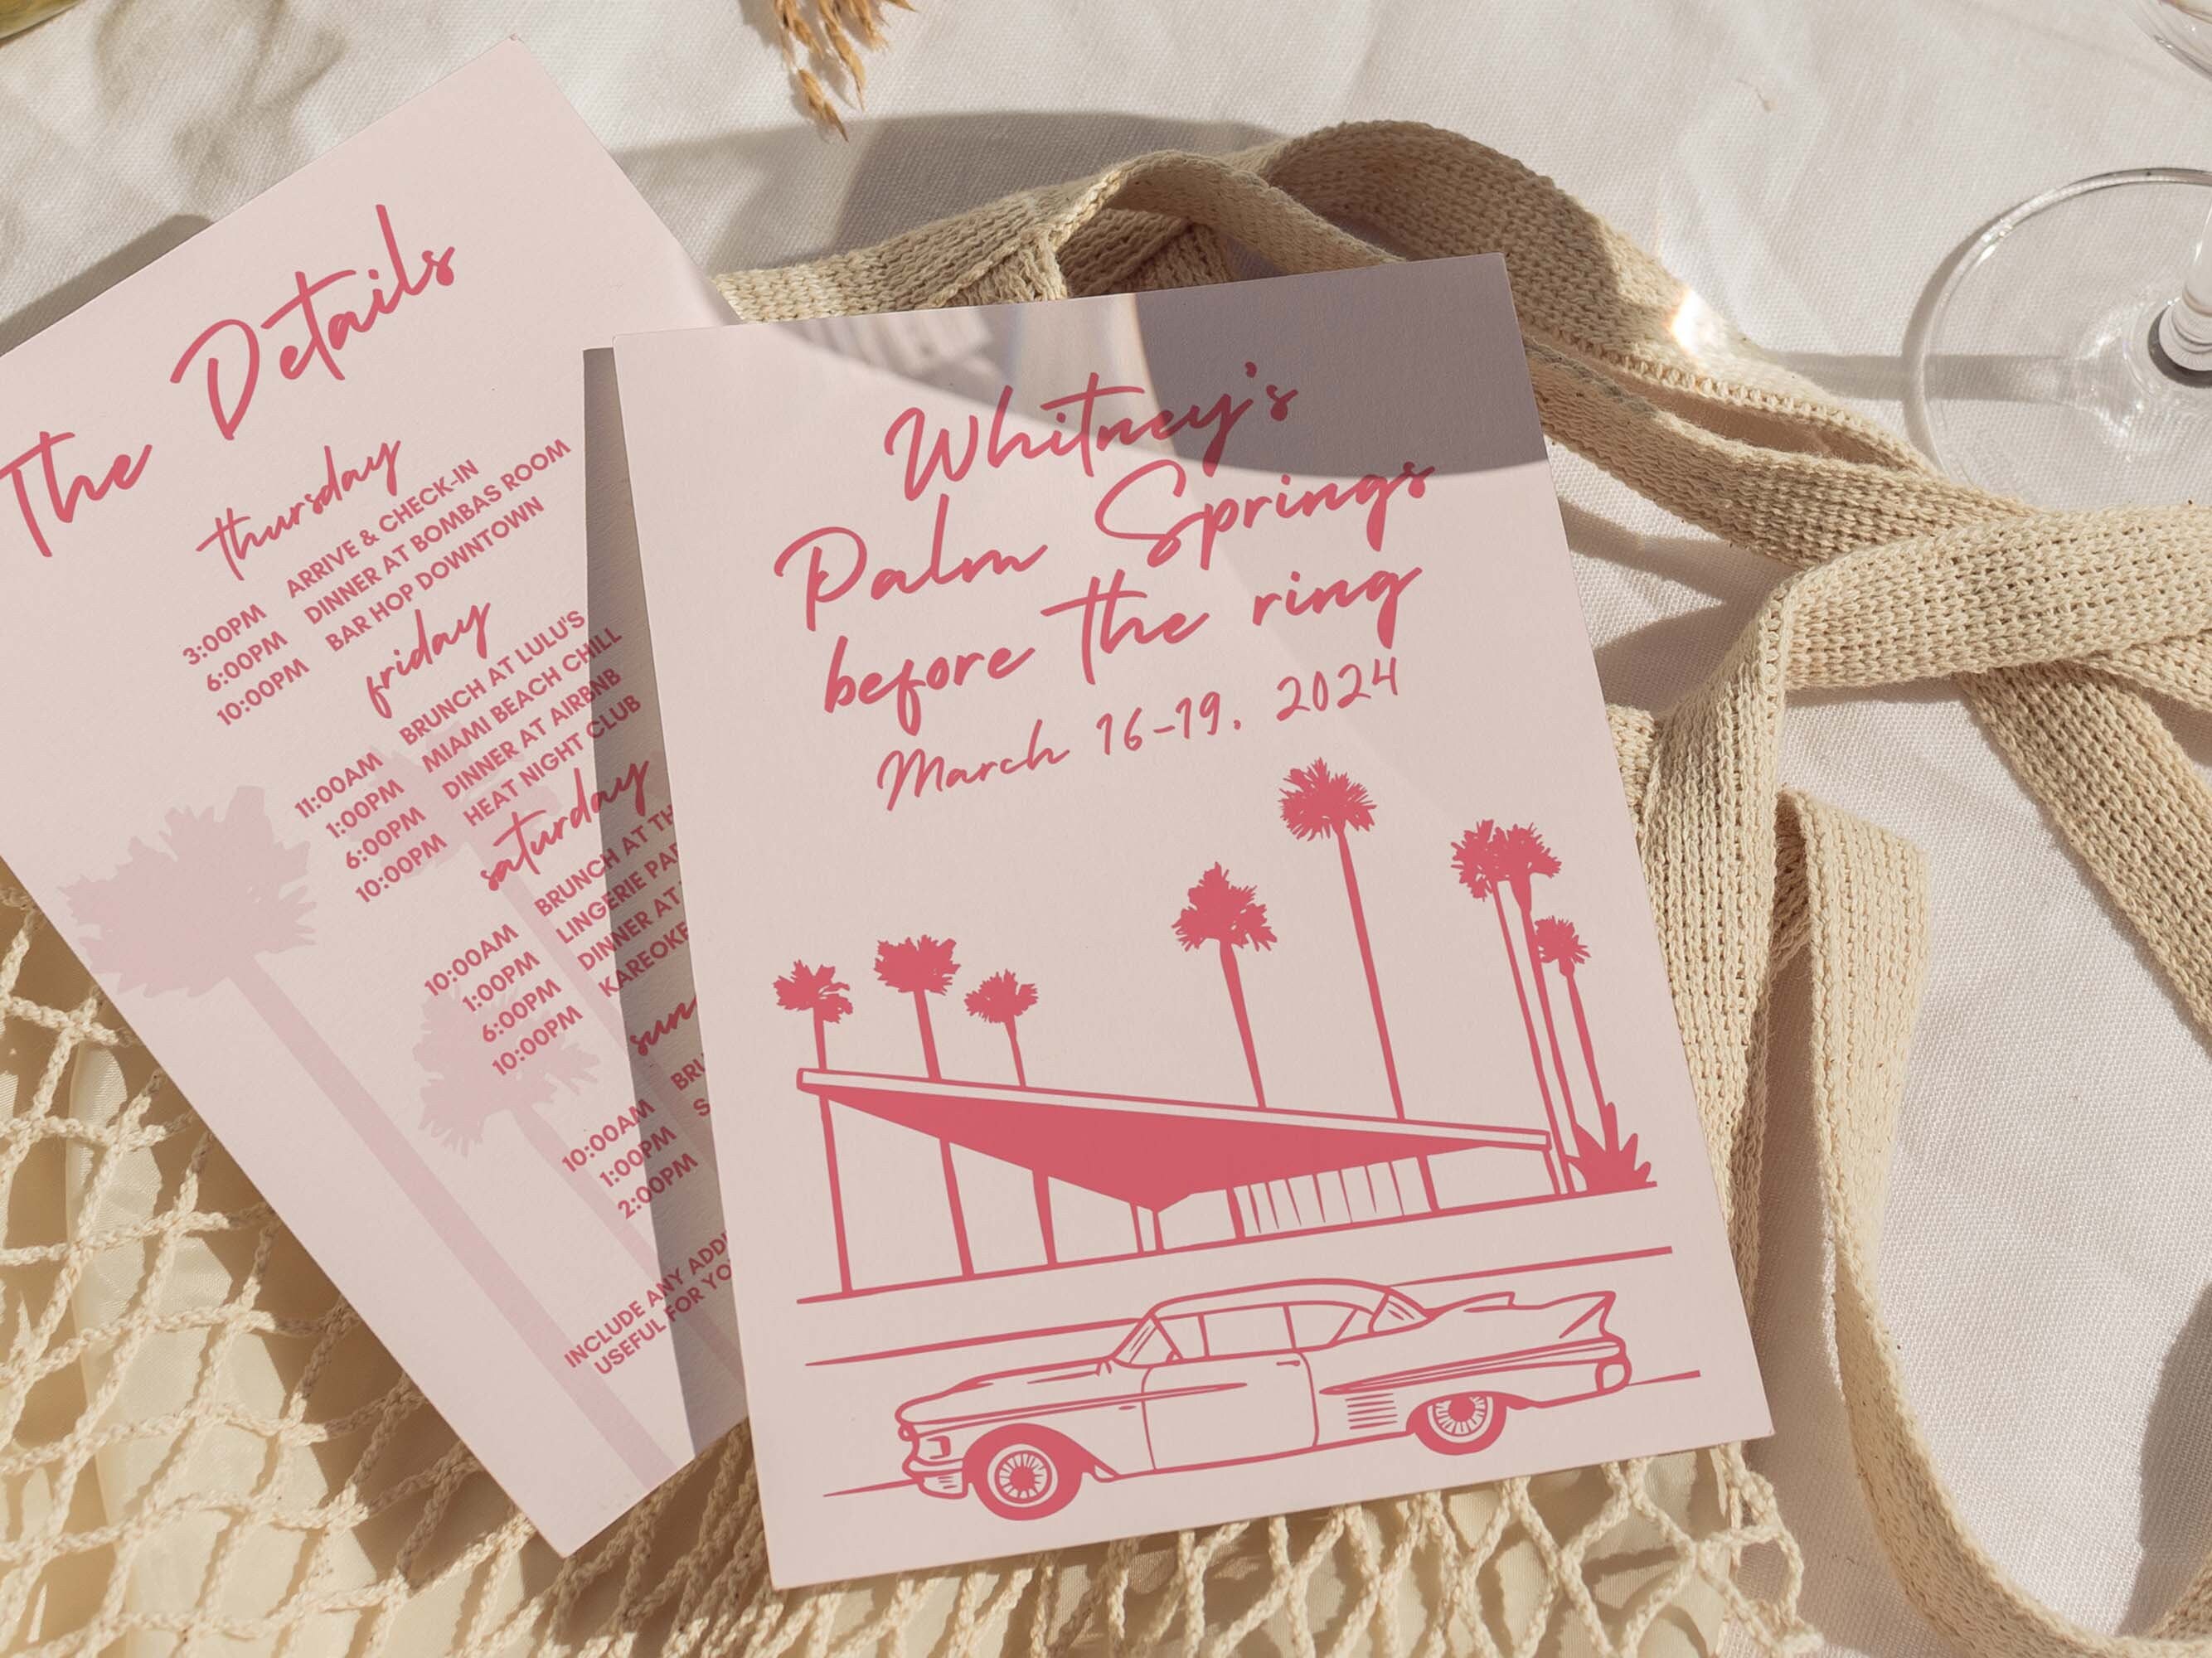 The Details
thursday
3:00PM ARRIVE & CHECK-IN
6:00PM DINNER AT BOMBAS ROOM
10:00PM BAR HOP DOWNTOWN
friday
11:00AM BRUNCH AT LULU'S
1:00PM MIAMI BEACH CHILL
6:00PM DINNER AT AIRBNB
10:00PM HEAT NIGHT CLUB
saturday
10:00AM BRUNCH AT
1:00PM LINGERIE
6:00PM DINNER AT
10:00PM KAREOKE
10:00AM
1:00PM
2:00PM
INCLUDE ANY
USEFUL FOR
Whitney's
Palm Springs
before the ring
March 16-19, 2024